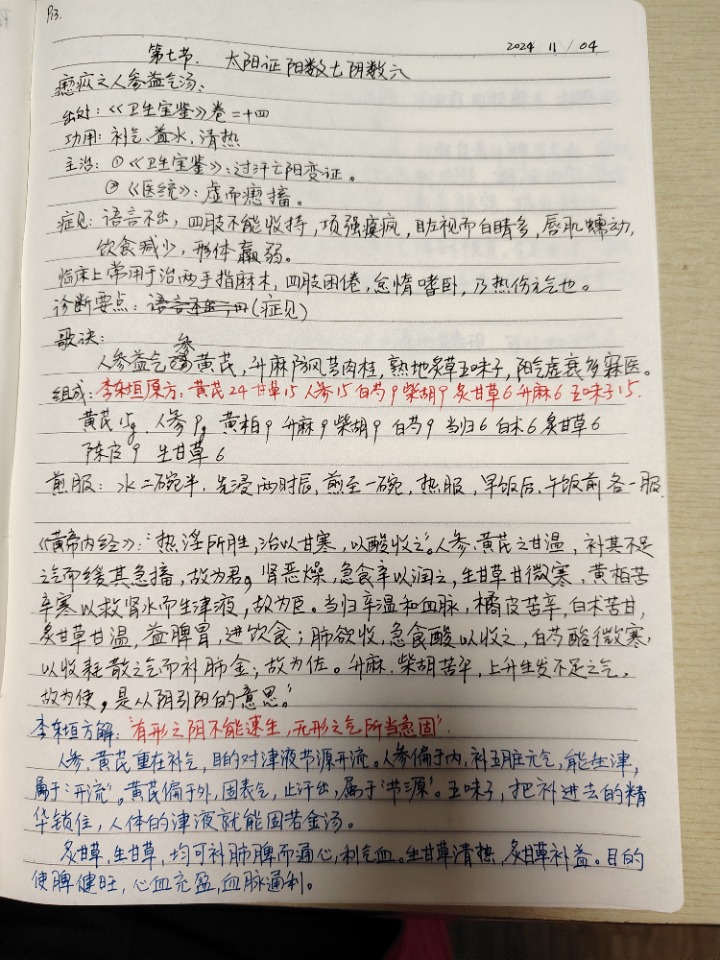 P13.
2024 11 / 04
第七节. 太阳证阳数七阴数六
瘛疭之人参益气汤:
出处:《卫生宝鉴》卷二十四
功用: 补气、益水, 清热
主治: ①《卫生宝鉴》: 过汗亡阳变证。
②《医统》: 虚而瘛搐。
症见: 语言不出, 四肢不能收持, 项强瘼疯, 目左视而白睛多, 唇肌蠕动,
饮食减少, 形体羸弱。
临床上常用于治两手指麻木, 四肢困倦, 怠惰嗜卧, 乃热伤元气也。
诊断要点: (症见)
歌诀:
人参益气参黄芪, 升麻防风芍肉桂, 熟地炙草五味子, 阳气虚衰多寐医。
组成: 李东垣原方: 黄芪24 甘草15 人参15 白芍9 柴胡9 炙甘草6 升麻6 五味子15.
黄芪15g. 人参9g 黄柏9 升麻9 柴胡9 白芍9 当归6 白术6 炙甘草6
陈皮9 生甘草6
煎服: 水二碗半, 先浸两时辰, 煎至一碗, 热服, 早饭后、午饭前各一服.
《黄帝内经》:“热淫所胜, 治以甘寒, 以酸收之”。人参、黄芪之甘温, 补其不足
之气而缓其急搐, 故为君, 肾恶燥, 急食辛以润之, 生甘草甘微寒, 黄柏苦
辛寒以救肾水而生津液, 故为臣。当归辛温和血脉, 橘皮苦辛, 白术苦甘,
炙甘草甘温, 益脾胃, 进饮食; 肺欲收, 急食酸以收之, 白芍酸微寒,
以收耗散之气而补肺金; 故为佐。升麻、柴胡苦平, 上升生发不足之气,
故为使, 是从阴引阳的意思。”
李东垣方解:“有形之阴不能速生, 无形之气所当急固”.
人参、黄芪重在补气, 目的对津液节源开流。人参偏于内, 补五脏元气, 能生津,
属于“开流”。黄芪偏于外, 固表气, 止汗出, 属于“节源”。五味子, 把补进去的精
华锁住, 人体的津液就能固若金汤。
炙甘草, 生甘草, 均可补肺脾而通心, 利气血。生甘草清热, 炙甘草补益。目的
使脾健旺, 心血充盈, 血脉通利。